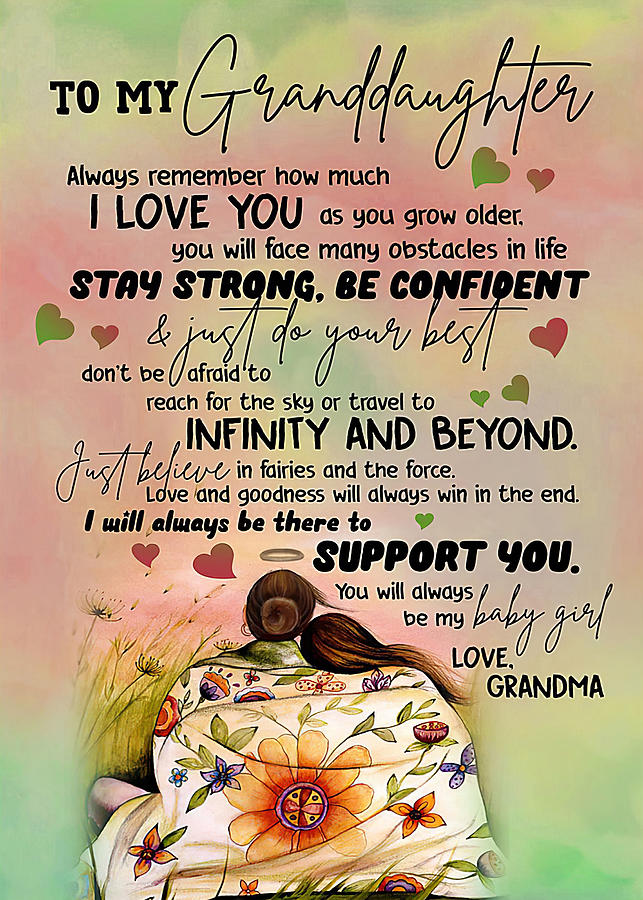 TO MY Granddaughter
Always remember how much
I LOVE YOU as you grow older,
you will face many obstacles in life
STAY STRONG, BE CONFIDENT
& just do your best
don't be afraid to
reach for the sky or travel to
INFINITY AND BEYOND.
Just believe in fairies and the force.
Love and goodness will always win in the end.
I will always be there to
SUPPORT YOU.
You will always
be my baby girl
LOVE,
GRANDMA